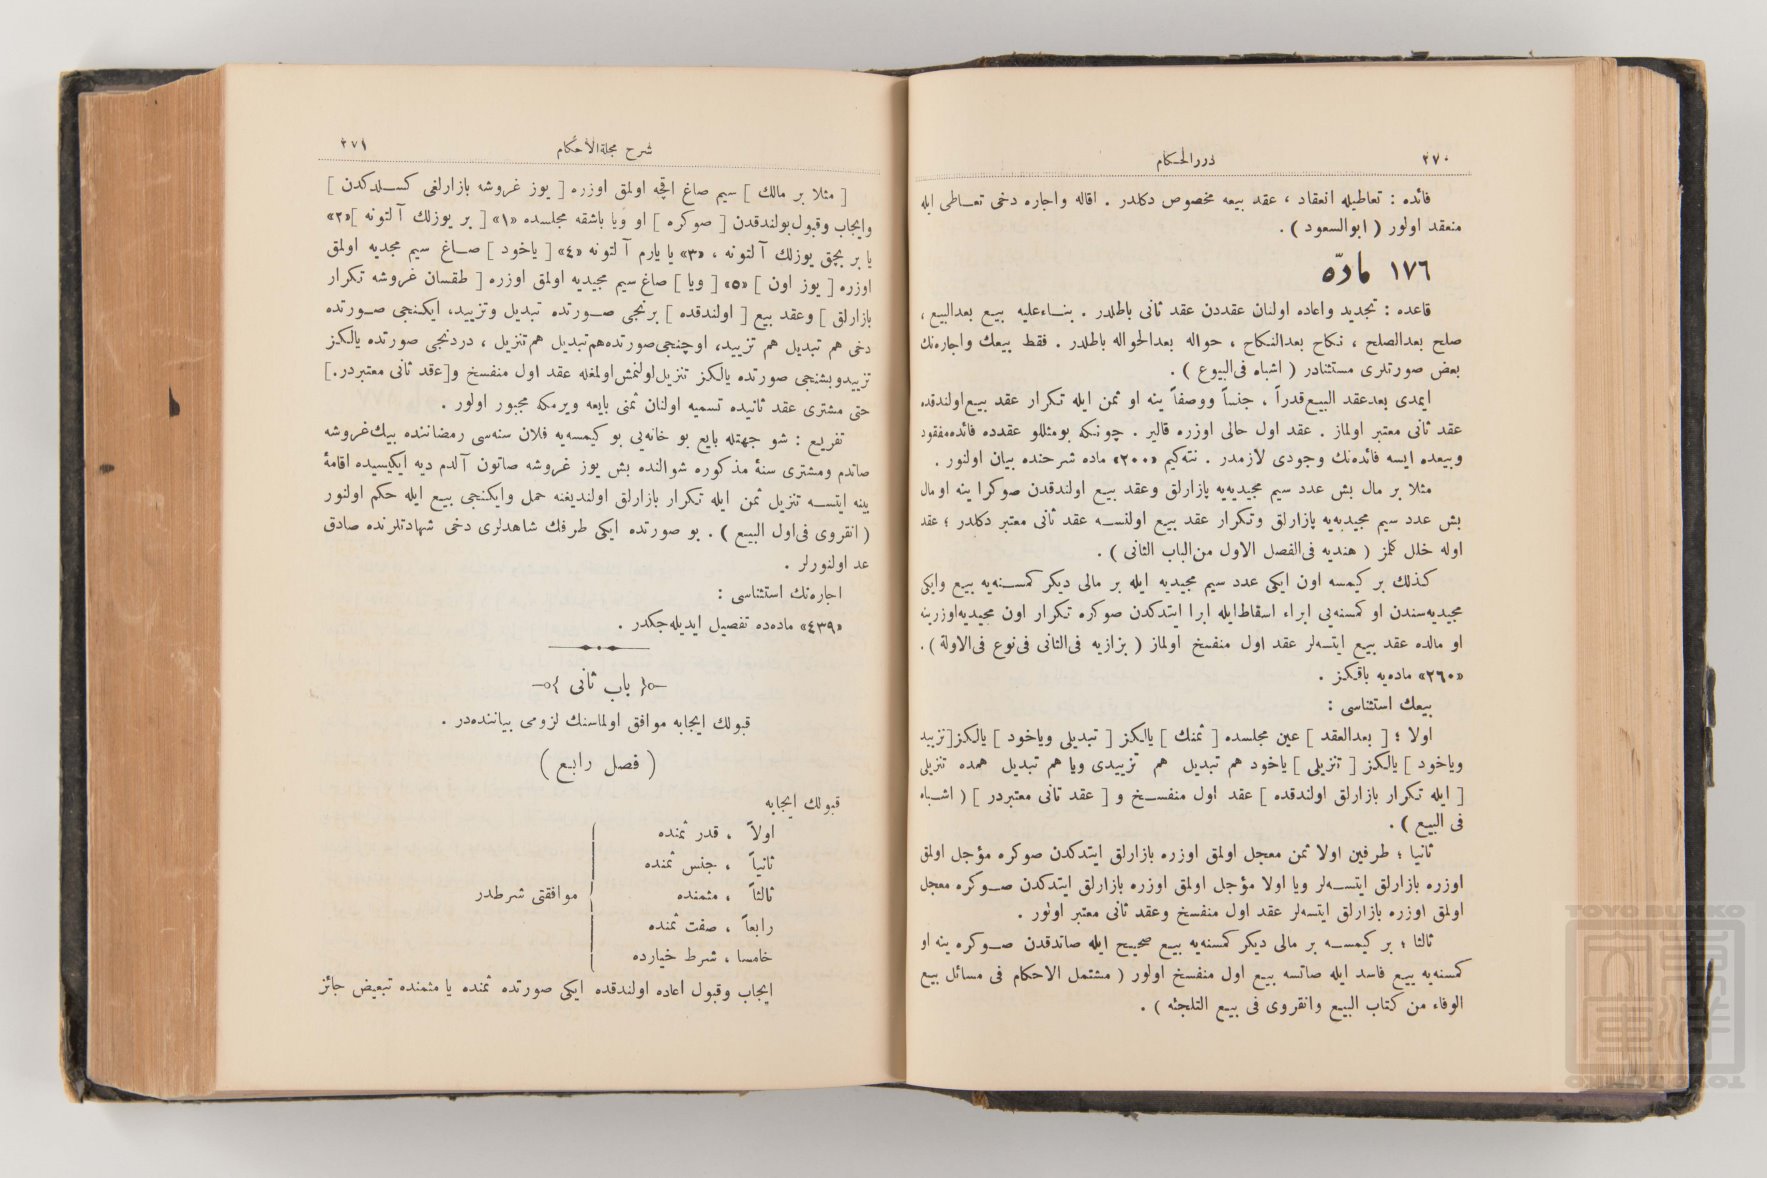 ٢٧٠
دررالحكام
فائده : تعاطيله انعقاد ، عقد بيعه مخصوص دكلدر . اقاله واجاره دخى تعـاطى ايله
منعقد اولور ( ابوالسعود ) .
١٧٦ مادّه
قاعده : تجديد واعاده اولنان عقددن عقد ثانى باطلدر . بنـاءعليه بيع بعدالبيع ،
صلح بعدالصلح ، نكاح بعدالنكاح ، حواله بعدالحواله باطلدر . فقط بيعك واجاره‌نك
بعض صورتلرى مستثنادر ( اشباه فى‌البيوع ) .
ايمدى بعدعقد البيع‌قدراً ، جنساً ووصفاً ينه او ثمن ايله تكرار عقد بيع‌اولندقده
عقد ثانى معتبر اولماز . عقد اول حالى اوزره قالير . چونكه بومثللو عقدده فائده‌مفقود
وبيعده ايسه فائده‌نك وجودى لازمدر . نته‌كيم «٢٠٠» ماده شرحنده بيان اولنور .
مثلا بر مال بش عدد سيم مجيديه‌يه پازارلق وعقد بيع اولندقدن صوكرا ينه او مال
بش عدد سيم مجيديه‌يه پازارلق وتكرار عقد بيع اولنسـه عقد ثانى معتبر دكلدر ؛ عقد
اوله خلل كلمز ( هنديه فى‌الفصل الاول من‌الباب الثانى ) .
كذلك بر كيمسه اون ايكى عدد سيم مجيديه ايله بر مالى ديكر كمسـنه‌يه بيع وايكى
مجيديه‌سندن او كمسنه‌يى ابراء اسقاط‌ايله ابرا ايتدكدن صوكره تكرار اون مجيديه‌اوزرينه
او مالده عقد بيع ايتسه‌لر عقد اول منفسخ اولماز ( بزازيه فى‌الثانى فى‌نوع فى‌الاولة ) .
«٢٦٠» ماده‌يه باقكز .
بيعك استثناسى :
اولا ؛ [ بعدالعقد ] عين مجلسده [ ثمنك ] يالكز [ تبديلى وياخود ] يالكز[تزييد
وياخود ] يالكز [ تنزيلى ] ياخود هم تبديل هم تزييدى ويا هم تبديل همده تنزيلى
[ ايله تكرار بازارلق اولندقده ] عقد اول منفسـخ و [ عقد ثانى معتبردر ] ( اشـباه
فى البيع ) .
ثانيا ؛ طرفين اولا ثمن معجل اولمق اوزره بازارلق ايتدكدن صوكره مؤجل اولمق
اوزره بازارلق ايتسـه‌لر ويا اولا مؤجل اولمق اوزره بازارلق ايتدكدن صـوكره معجل
اولمق اوزره بازارلق ايتسه‌لر عقد اول منفسخ وعقد ثانى معتبر اولور .
ثالثا ؛ بر كيمسـه بر مالى ديكر كمسنه‌يه بيع صحيح ايله صاتدقدن صـوكره ينه او
كمسنه‌يه بيع فاسد ايله صاتسه بيع اول منفسخ اولور ( مشتمل الاحكام فى مسائل بيع
الوفاء من كتاب البيع وانقروى فى بيع التلجئه ) .
شرح مجلةالأحكام
٢٧١
[ مثلا بر مالك ] سيم صاغ اقچه اولمق اوزره [ يوز غروشه بازارلغى كسـلدكدن ]
وايجاب وقبول‌بولندقدن [ صوكره ] او ويا باشقه مجلسده «١» [ بر يوزلك آلتونه ]«٢»
يا بر بچق يوزلك آلتونه ، «٣» يا يارم آلتونه «٤» [ ياخود ] صـاغ سيم مجديه اولمق
اوزره [ يوز اون ] «٥» [ ويا ] صاغ سيم مجيديه اولمق اوزره [ طقسان غروشه تكرار
بازارلق ] وعقد بيع [ اولندقده ] برنجى صـورتده تبديل وتزييد، ايكنجى صـورتده
دخى هم تبديل هم تزييد، اوچنجى‌صورتده‌هم‌تبديل هم‌تنزيل ، دردنجى صورتده يالكز
تزييدوبشنجى صورتده يالكز تنزيل‌اولنمش‌اولمغله عقد اول منفسخ و[عقد ثانى معتبردر.]
حتى مشترى عقد ثانيده تسميه اولنان ثمنى بايعه ويرمكه مجبور اولور .
تفريع : شو جهتله بايع بو خانه‌يى بو كيمسه‌يه فلان سنه‌سى رمضاننده بيك‌غروشه
صاتدم ومشترى سنۀ مذكوره شوالنده بش يوز غروشه صاتون آلدم ديه ايكيسيده اقامۀ
بينه ايتسـه تنزيل ثمن ايله تكرار بازارلق اولنديغنه حمل وايكنجى بيع ايله حكم اولنور
( انقروى فى‌اول البيع ) . بو صورتده ايكى طرفك شاهدلرى دخى شهادتلرنده صادق
عد اولنورلر .
اجاره‌نك استثناسى :
«٤٣٩» ماده‌ده تفصيل ايديله‌جكدر .
باب ثانى
قبولك ايجابه موافق اولماسنك لزومى بياننده‌در .
( فصل رابع )
قبولك ايجابه
اولاً ، قدر ثمنده
ثانياً ، جنس ثمنده
ثالثاً ، مثمنده
موافقتى شرطدر
رابعاً ، صفت ثمنده
خامسا ، شرط خيارده
ايجاب وقبول اعاده اولندقده ايكى صورتده ثمنده يا مثمنده تبعيض جائز
TOYO BUNKO
東洋文庫
TOYO BUNKO